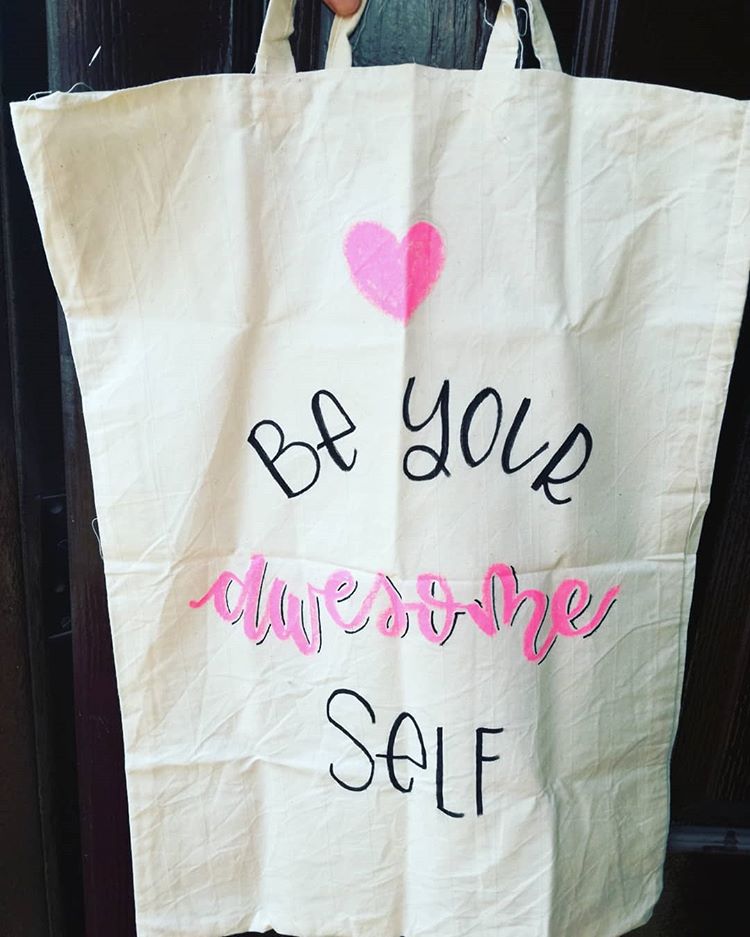 Be YOUR
awesome
SeLF